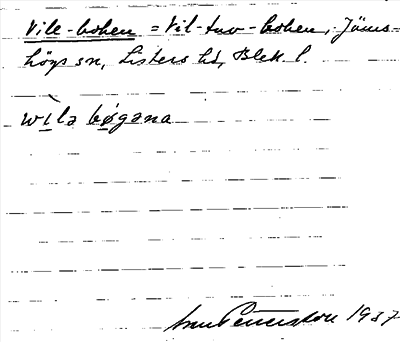 Vile-boken = Vil-tuv-boken, Jäms-
högs sn, Listers hd, Blek. l.
wila bøgəna
Pettersson 1937